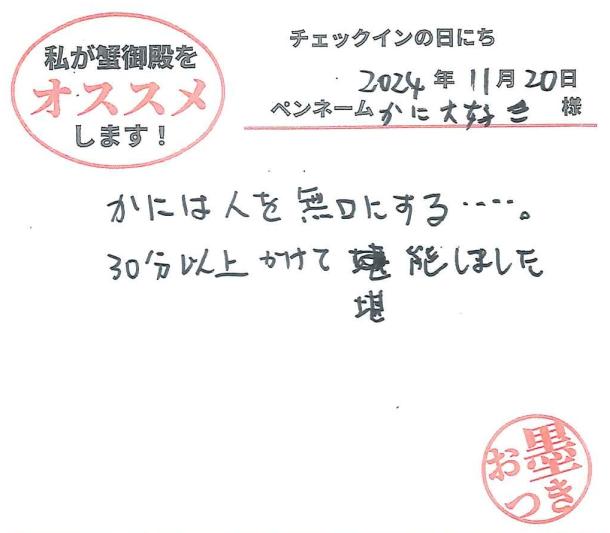 私が蟹御殿を
オススメ
します!
チェックインの日にち
2024年11月20日
ペンネーム かに大好き 様
かには人を無口にする‥‥。
30分以上かけて 能しました
堪
お墨
つき